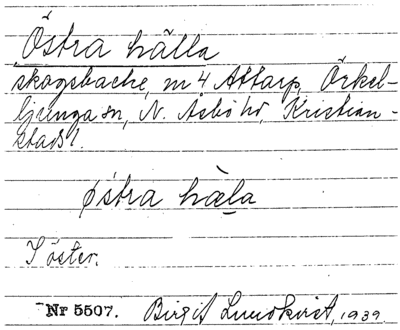 Östra hälla
skogsbacke, m 4 Attarp, Örkel-
ljunga sn, N. Åsbo hd, Kristian-
stads l.
östra hæla
I öster.
Nr 5507. Birgit Lundkvist, 1939